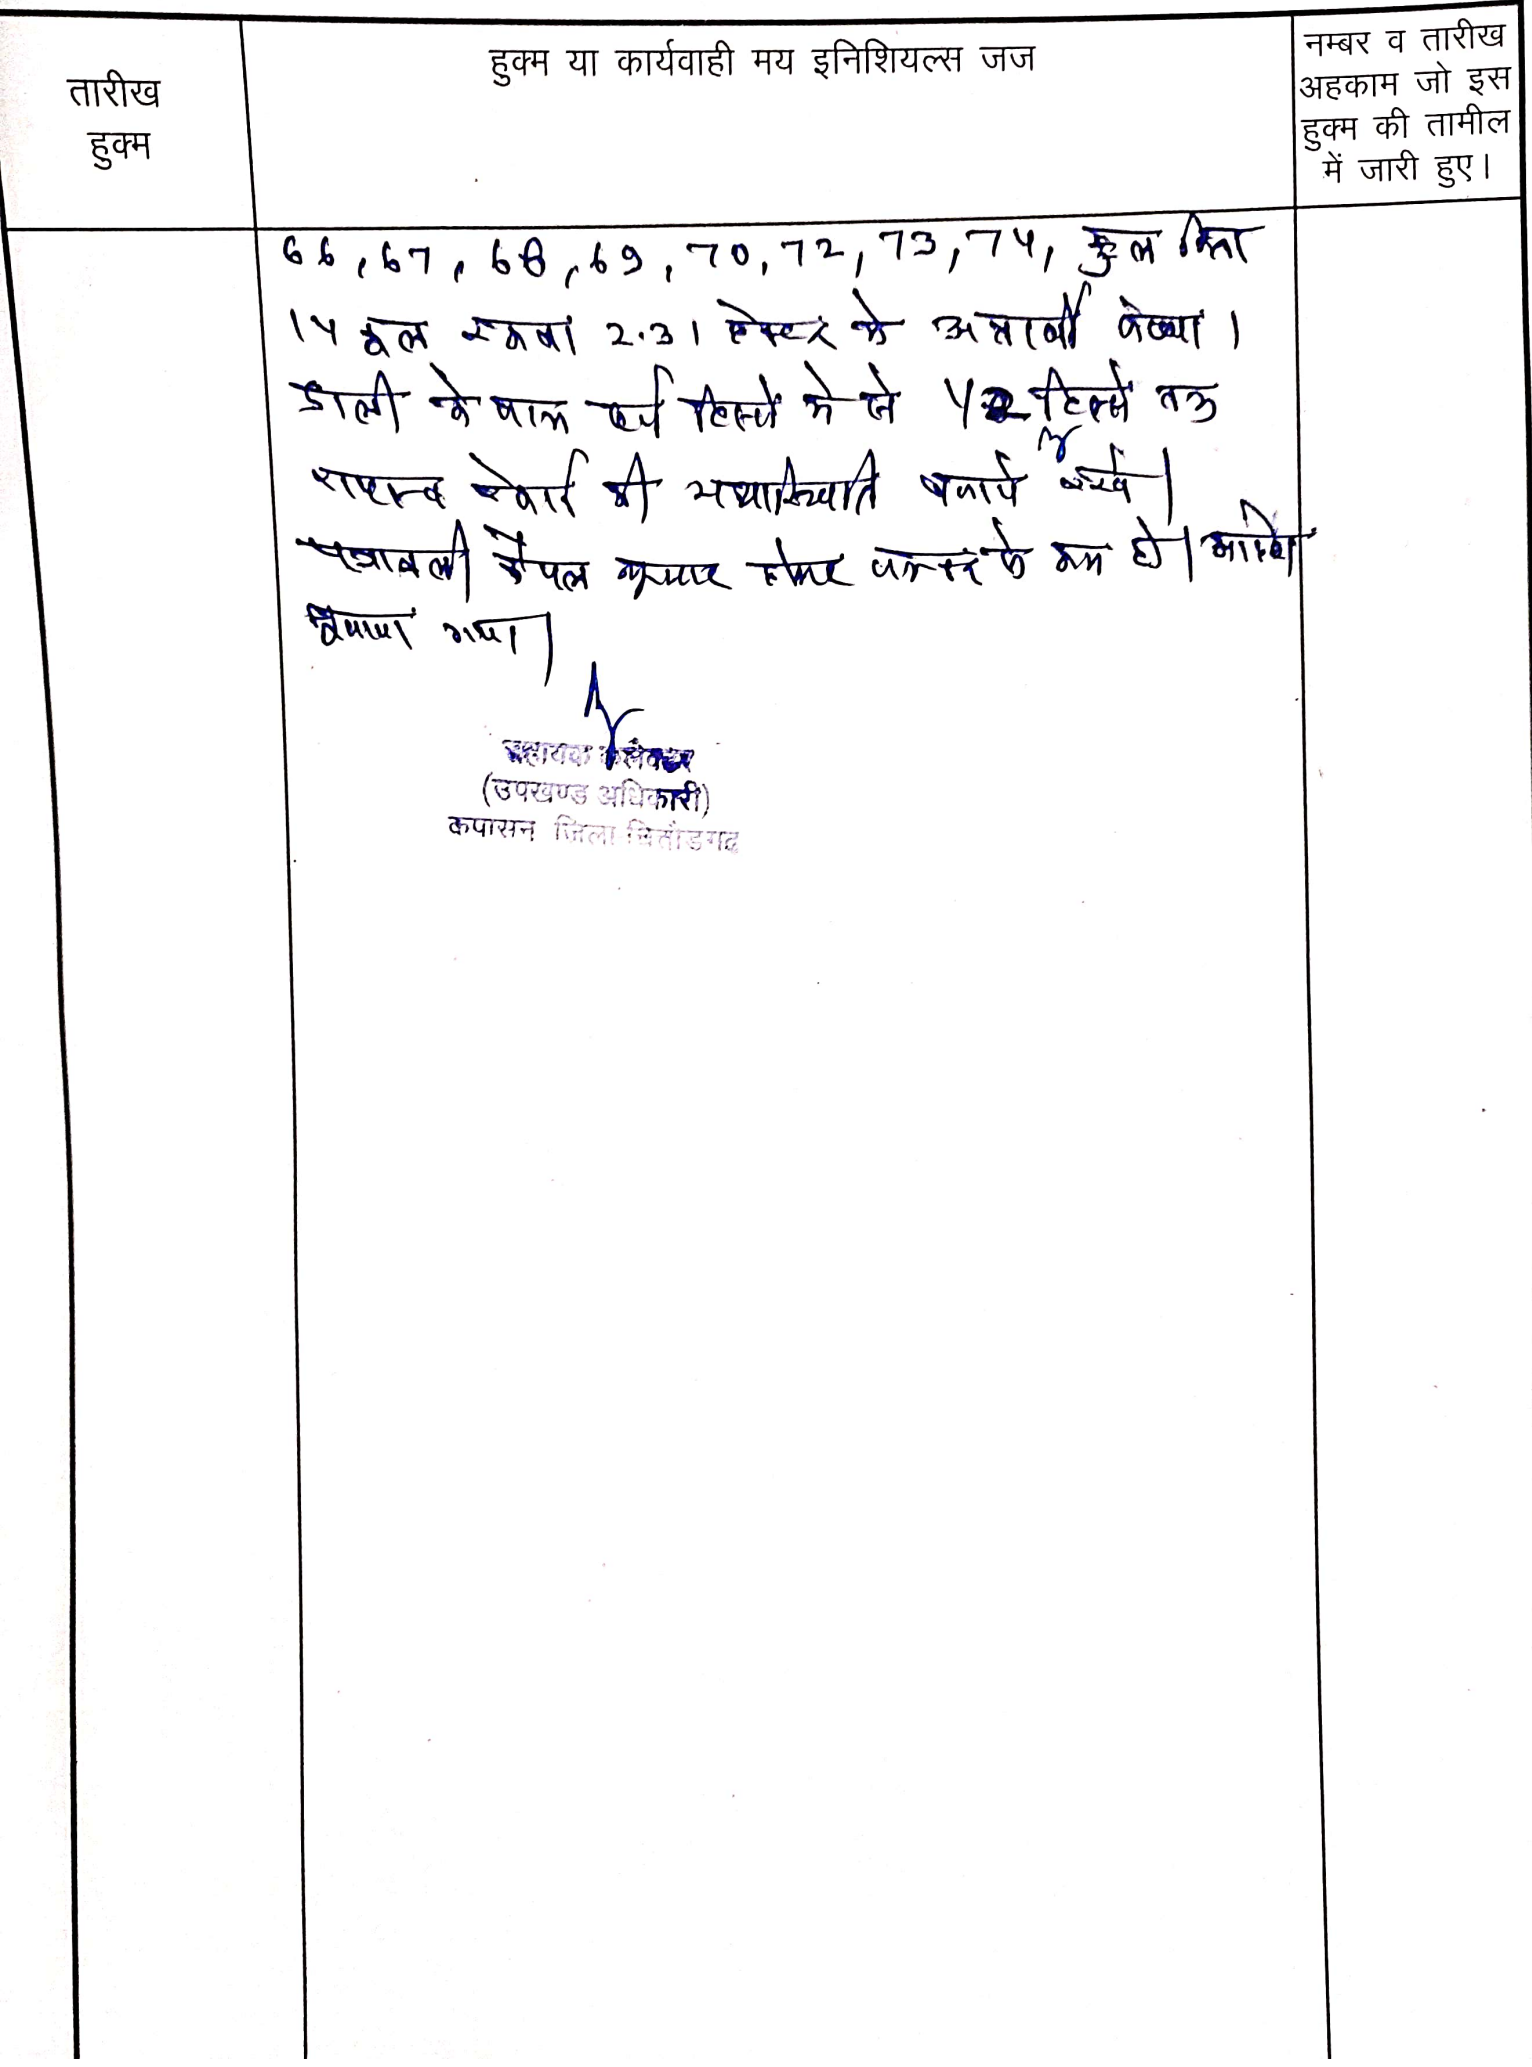 तारीख
हुक्म
हुक्म या कार्यवाही मय इनिशियल्स जज
नम्बर व तारीख
अहकाम जो इस
हुक्म की तामील
में जारी हुए।
66, 67, 68, 69, 70, 72, 73, 74, कुल किता
14 कुल रकबा 2.31 हेक्टर के
के हिस्से में से हिस्से तक
राजस्व रेकार्ड की यथास्थिति बनाये रखें।
पत्रावली फैसल शुमार होकर नम्बर से कम हो। आदेश
सुनाया गया।
सहायक कलेक्टर
(उपखण्ड अधिकारी)
कपासन जिला चितौडगढ